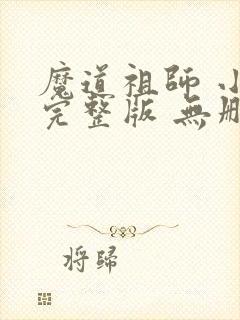 魔道祖師 小
完整版 無刪
将歸